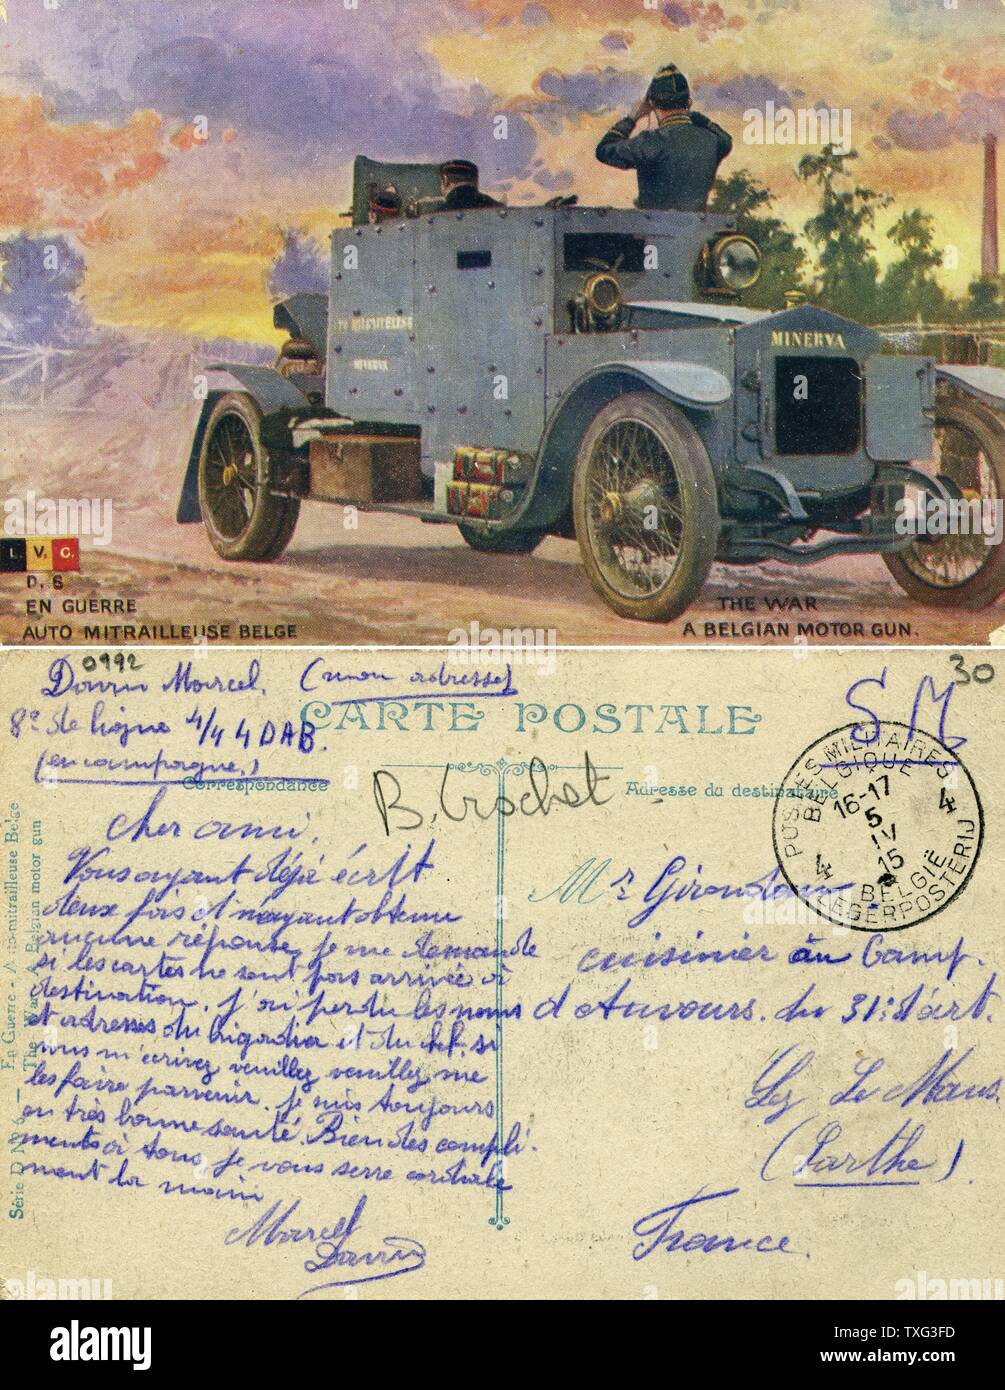 MINERVA
MITRAILLEUSE
MINERVA
L. V. C.
D. 6
EN GUERRE
AUTO MITRAILLEUSE BELGE
THE WAR
A BELGIAN MOTOR GUN.
0992
30
Marcel. (mon adresse)
8e de ligne 4/4 4 DAB.
(en campagne.)
S M
CARTE POSTALE
Correspondance
Adresse du destinataire
B. Crochet
POSTES MILITAIRES
BELGIQUE
16-17
5
IV
15
BELGIË
LEGERPOSTERIJ
4 4
Cher ami,
Vous ayant déjà écrit
deux fois et n'ayant obtenu
aucune réponse, je me demande
si les cartes ne sont pas arrivée à
destination. j'ai perdu les noms
et adresses du brigadier et du chef. si
vous m'écrivez veuillez veuillez me
les faire parvenir. je suis toujours
en très bonne santé. Bien des compli-
ments à tous, je vous serre cordiale
ment la main
Marcel
Mr
cuisinier au Camp.
d'Auvours. du 31: d'art.
Lez Le Mans.
(Sarthe)
France.
Série D No 6 - En Guerre - Auto-mitrailleuse Belge
The War A Belgian motor gun
alamy
alamy
alamy
alamy
alamy
alamy
Image ID: TXG3FD
www.alamy.com